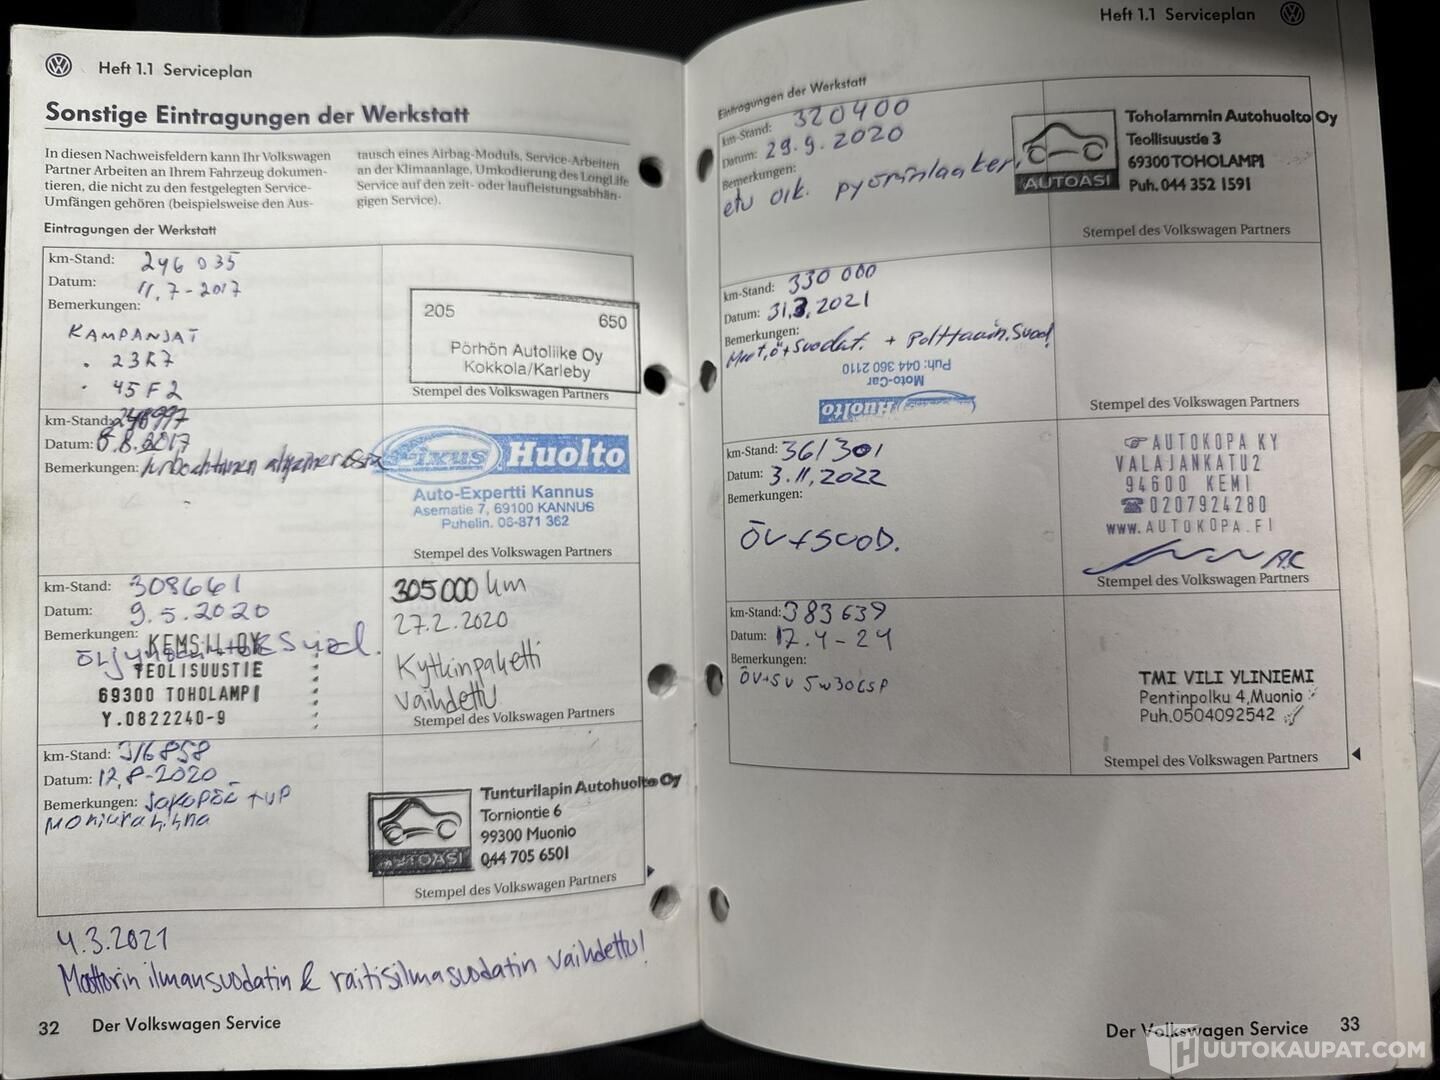 Heft 1.1 Serviceplan
Sonstige Eintragungen der Werkstatt
In diesen Nachweisfeldern kann Ihr Volkswagen
Partner Arbeiten an Ihrem Fahrzeug dokumen-
tieren, die nicht zu den festgelegten Service-
Umfängen gehören (beispielsweise den Aus-
tausch eines Airbag-Moduls, Service-Arbeiten
an der Klimaanlage, Umkodierung des LongLife
Service auf den zeit- oder laufleistungsabhän-
gigen Service).
Eintragungen der Werkstatt
km-Stand: 246 035
Datum: 11.7-2017
Bemerkungen:
KAMPANJAT
• 23K7
• 45F2
205
650
Pörhön Autoliike Oy
Kokkola/Karleby
Stempel des Volkswagen Partners
km-Stand:
Datum: 8.8.2017
Bemerkungen:
Fixus Huolto
Auto-Expertti Kannus
Asematie 7, 69100 KANNUS
Puhelin. 06-871 362
Stempel des Volkswagen Partners
km-Stand: 308661
Datum: 9.5.2020
Bemerkungen:
KEMSIL OY
TEOLISUUSTIE
69300 TOHOLAMPI
Y.0822240-9
305000 km
27.2.2020
Kytkinpaketti
vaihdettu
Stempel des Volkswagen Partners
km-Stand: 316858
Datum: 12.8-2020
Bemerkungen: Jakopää + VP
moniurahihna
Tunturilapin Autohuolto Oy
Torniontie 6
99300 Muonio
044 705 6501
AUTOASI
Stempel des Volkswagen Partners
4.3.2021
Moottorin ilmansuodatin & raitisilmasuodatin vaihdettu!
32 Der Volkswagen Service
Heft 1.1 Serviceplan
Eintragungen der Werkstatt
km-Stand: 320400
Datum: 29.9.2020
Bemerkungen:
etu oik. pyöränlaakeri
AUTOASI
Toholammin Autohuolto Oy
Teollisuustie 3
69300 TOHOLAMPI
Puh. 044 352 1591
Stempel des Volkswagen Partners
km-Stand: 330 000
Datum: 31.3.2021
Bemerkungen:
Moot.ö+suodat. + Polttoain.Suod.
Huolto
Moto-Car
Puh: 044 360 2110
Stempel des Volkswagen Partners
km-Stand: 361301
Datum: 3.11.2022
Bemerkungen:
ÖV+SUOD.
AUTOKOPA KY
VALAJANKATU2
94600 KEMI
☎0207924280
WWW.AUTOKOPA.FI
Stempel des Volkswagen Partners
km-Stand: 383639
Datum: 17.4-24
Bemerkungen:
ÖV+SV 5W30 LSP
TMI VILI YLINIEMI
Pentinpolku 4,Muonio
Puh.0504092542
Stempel des Volkswagen Partners
Der Volkswagen Service 33
HUUTOKAUPAT.COM